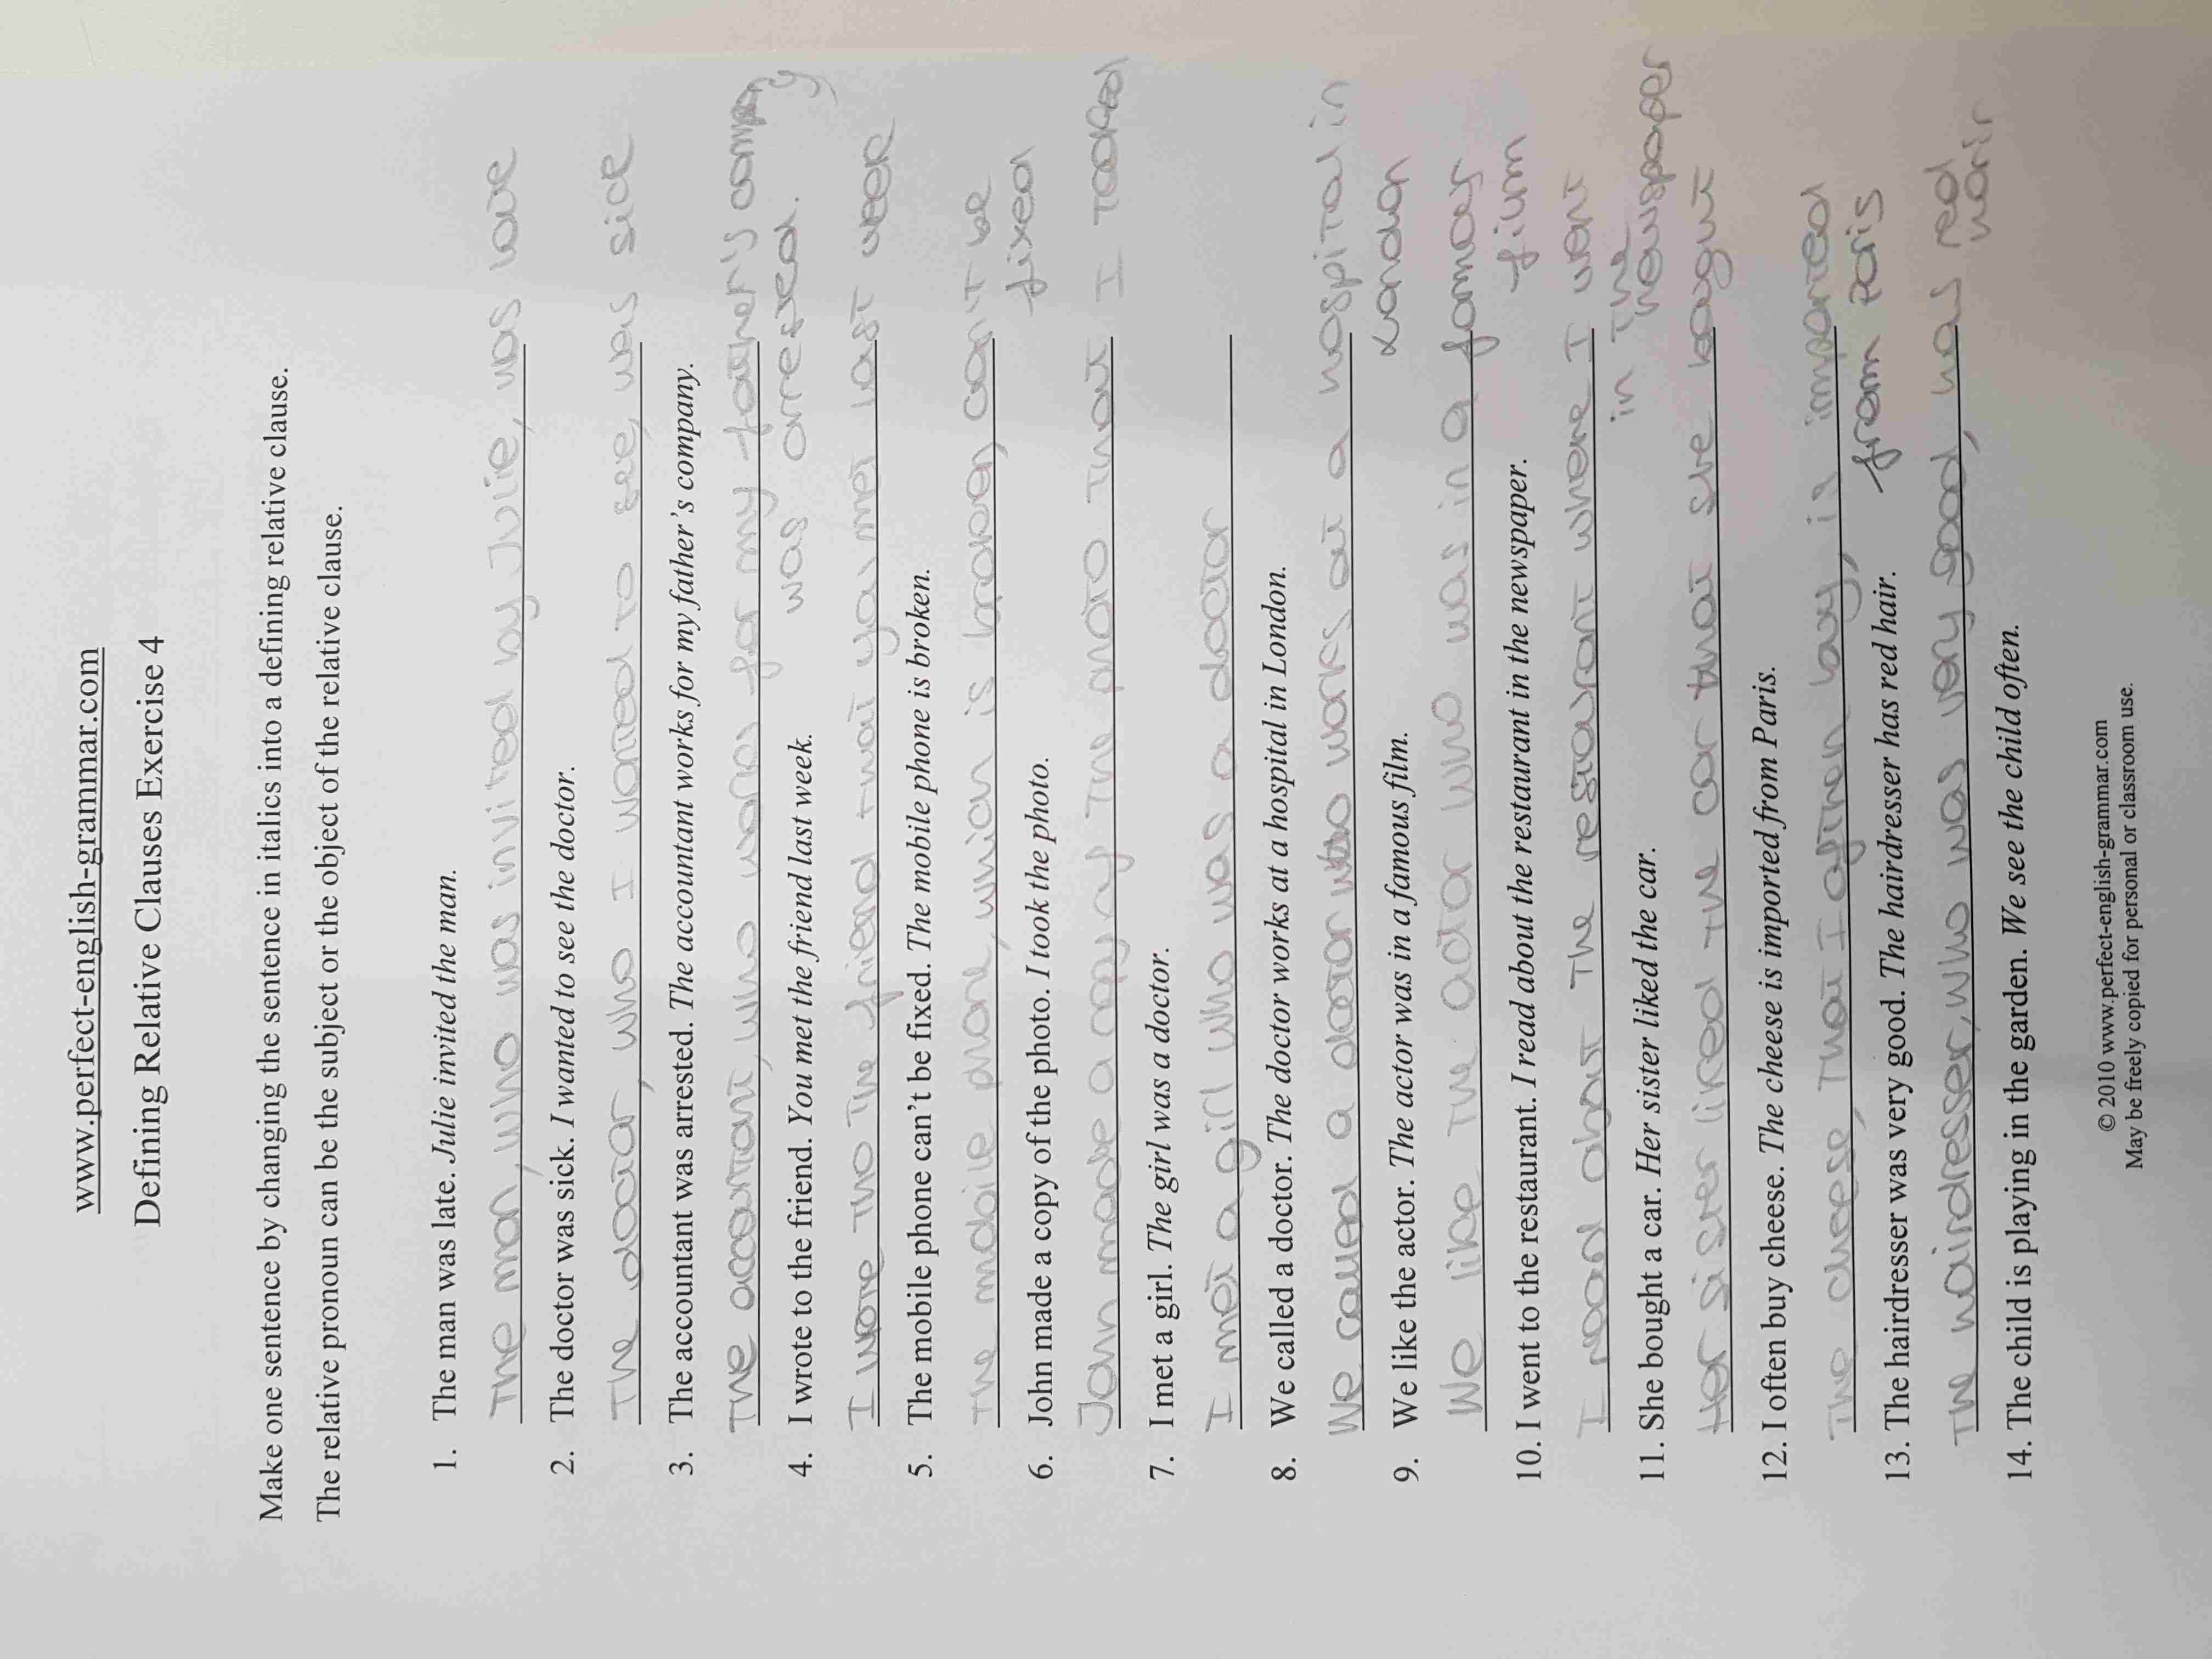 www.perfect-english-grammar.com
Defining Relative Clauses Exercise 4
Make one sentence by changing the sentence in italics into a defining relative clause.
The relative pronoun can be the subject or the object of the relative clause.
1. The man was late. Julie invited the man.
The man, who was invited by Julie, was late
2. The doctor was sick. I wanted to see the doctor.
The doctor, who I wanted to see, was sick
3. The accountant was arrested. The accountant works for my father's company.
The accountant, who works for my father's company
was arrested.
4. I wrote to the friend. You met the friend last week.
I wrote the friend that you met last week
5. The mobile phone can't be fixed. The mobile phone is broken.
The mobile phone, which is broken, can't be
fixed
6. John made a copy of the photo. I took the photo.
John made a copy the photo that I tooked
7. I met a girl. The girl was a doctor.
I met a girl who was a doctor
8. We called a doctor. The doctor works at a hospital in London.
We called a doctor who works at a hospital in
London
9. We like the actor. The actor was in a famous film.
We like the actor who was in a famous
film
10. I went to the restaurant. I read about the restaurant in the newspaper.
I read about the restaurant where I went
in the
newspaper
11. She bought a car. Her sister liked the car.
Her sister liked the car that she bought
12. I often buy cheese. The cheese is imported from Paris.
The cheese, that I often buy, is imported
from Paris
13. The hairdresser was very good. The hairdresser has red hair.
The hairdresser, who was very good, has red
hair
14. The child is playing in the garden. We see the child often.
© 2010 www.perfect-english-grammar.com
May be freely copied for personal or classroom use.